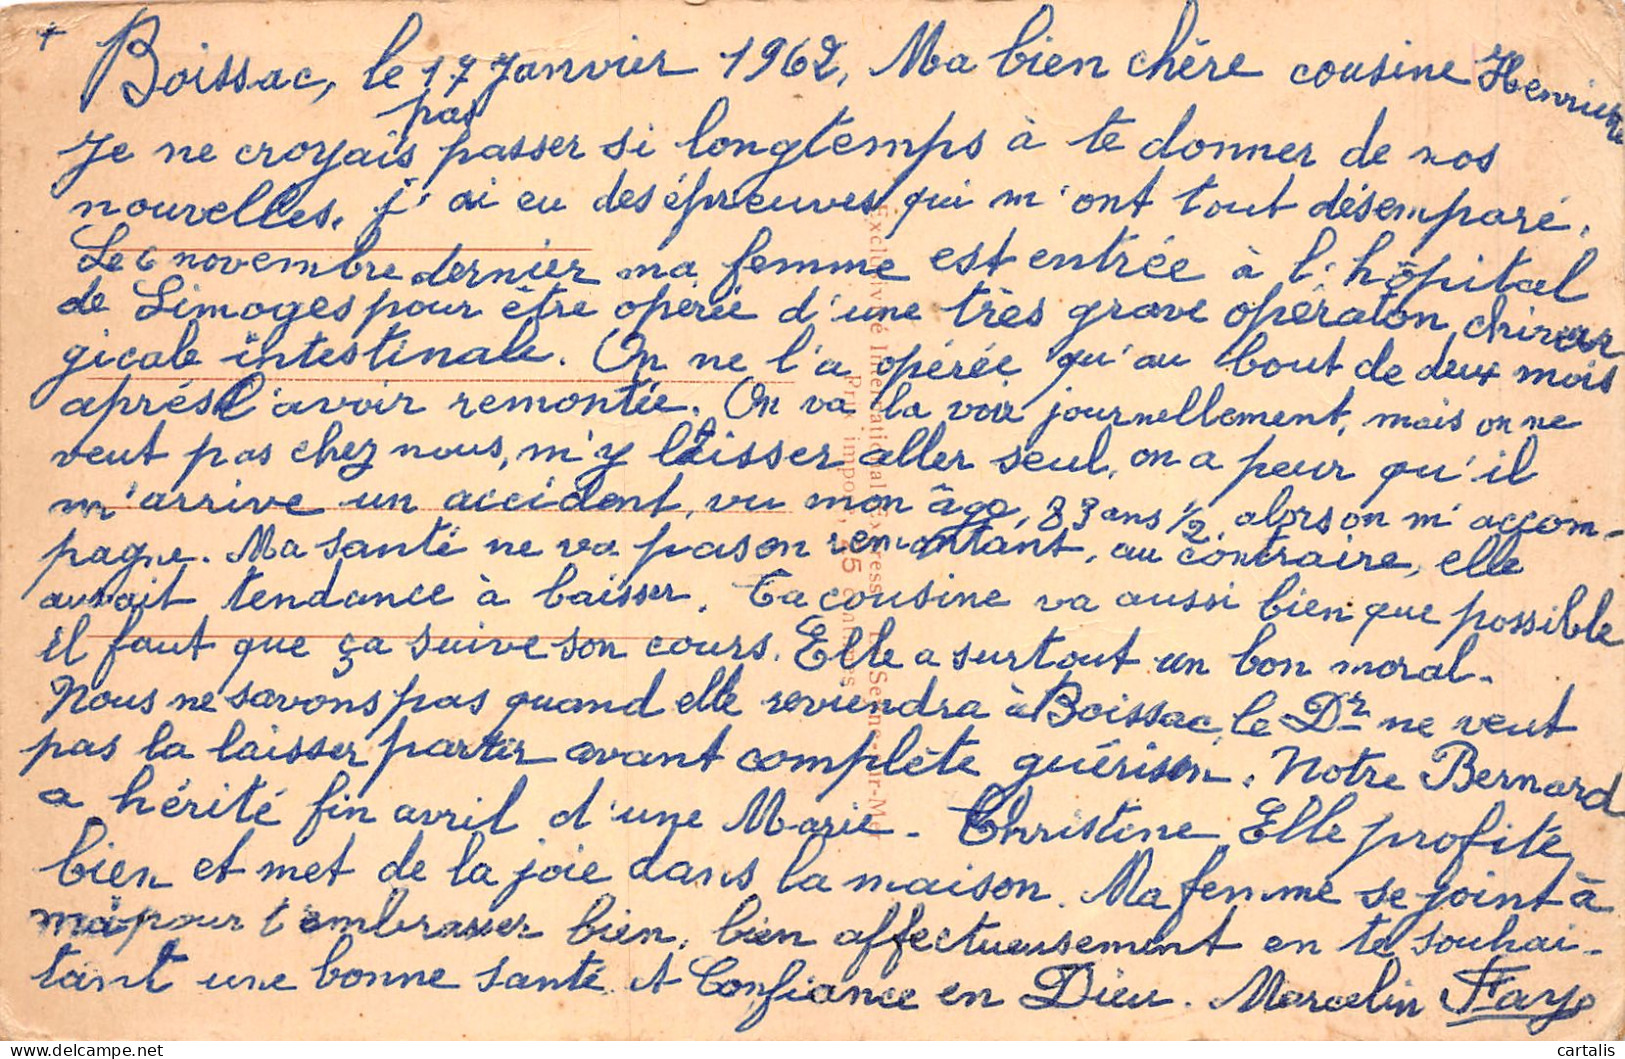 + Boissac, le 17 Janvier 1962, Ma bien chère cousine Henriette
pas
Je ne croyais passer si longtemps à te donner de nos
nouvelles. j'ai eu des épreuves qui m'ont tout désemparé.
Le 6 novembre dernier ma femme est entrée à l'hôpital
de Limoges pour être opérée d'une très grave opératon chirur
gicale intestinale. On ne l'a opérée qu'au bout de deux mois
après l'avoir remontée. On va la voir journellement, mais on ne
veut pas chez nous, m'y laisser aller seul, on a peur qu'il
m'arrive un accident, vu mon âge, 83 ans 1/2, alors on m'accom-
pagne. Ma santé ne va pas en remontant, au contraire, elle
aurait tendance à baisser. Ta cousine va aussi bien que possible
il faut que ça suive son cours. Elle a surtout un bon moral.
Nous ne savons pas quand elle reviendra à Boissac, le Dr ne veut
pas la laisser partir avant complète guérison. Notre Bernard
a hérité fin avril d'une Marie-Christine Elle profite
bien et met de la joie dans la maison. Ma femme se joint à
pour t'embrasser bien, bien affectueusement en te souhai-
tant une bonne santé et Confiance en Dieu. Marcelin Faye
Exclusivité Internationale
Prix imposé,
La Seyne-sur-Mer
cartalis